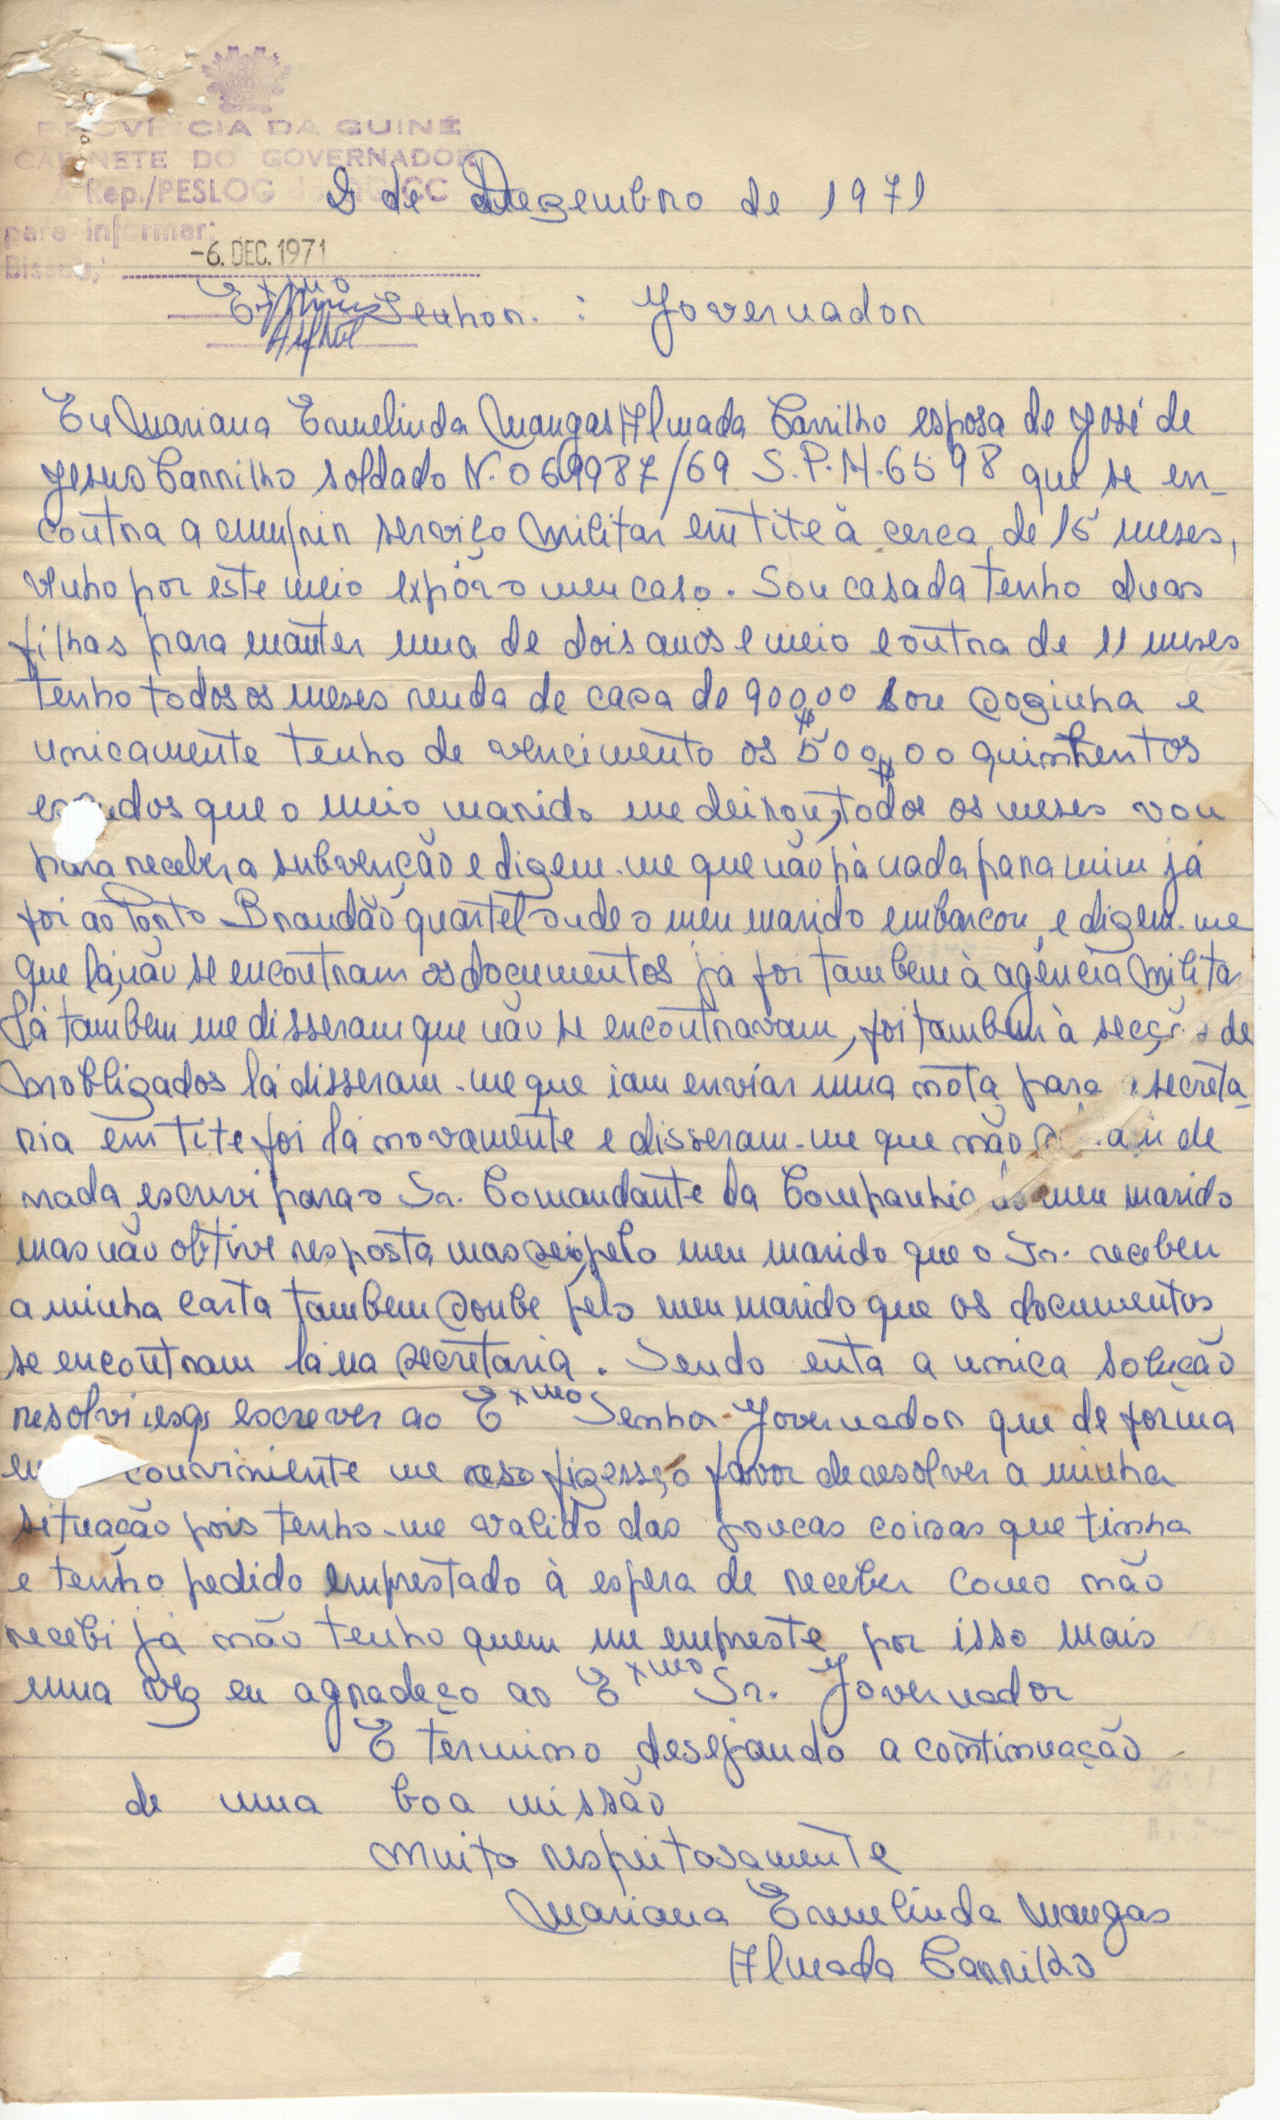 PROVINCIA DA GUINÉ
GABINETE DO GOVERNADOR
Rep./PESLOG CC
para informar:
Bissau,
-6. DEC. 1971
2 de Dezembro de 1971
Exmo Senhor. : Governador
Eu Mariana Ermelinda Mangas Almada Carrilho esposa de José de
Jesus Carrilho soldado N. 069987/69 S.P.M. 6598 que se en-
contra a cumprir serviço Militar em tite à cerca de 15 meses,
venho por este meio expôr o meu caso. Sou casada tenho duas
filhas para manter uma de dois anos e meio e outra de 11 meses
tenho todos os meses renda de casa de 900$00 sou soginha e
unicamente tenho de vencimento os 500$00 quinhentos
es udos que o meio marido me deixou, todos os meses vou
para receber a subvenção e digem-me que não há nada para mim já
foi ao Porto Brandão quartel onde o meu marido embarcou e digem-me
que lá não se encontram os documentos já foi tambem à agência Milita
lá tambem me disseram que não se encontravam, foi tambem à secç o de
Mobligados lá disseram-me que iam enviar uma nota para a secreta-
ria em tite foi lá novamente e disseram-me que não de
nada, escrevi para o Sr. Comandante da Companhia do meu marido
mas não obtive resposta, mas sei pelo meu marido que o Sr. recebeu
a minha carta tambem soube pelo meu marido que os documentos
se encontram lá na secretaria. Sendo esta a unica solução
resolvi escrever ao Exmo Senhor Governador que de forma
em conviniente me figesse o favor de resolver a minha
situação pois tenho-me valido das poucas coisas que tinha
e tenho pedido emprestado à espera de receber como não
recebi já não tenho quem me empreste por isso mais
uma vez eu agradeço ao Exmo Sr. Governador
E termino desejando a continuação
de uma boa missão
Muito respeitosamente
Mariana Ermelinda Mangas
Almada Carrilho